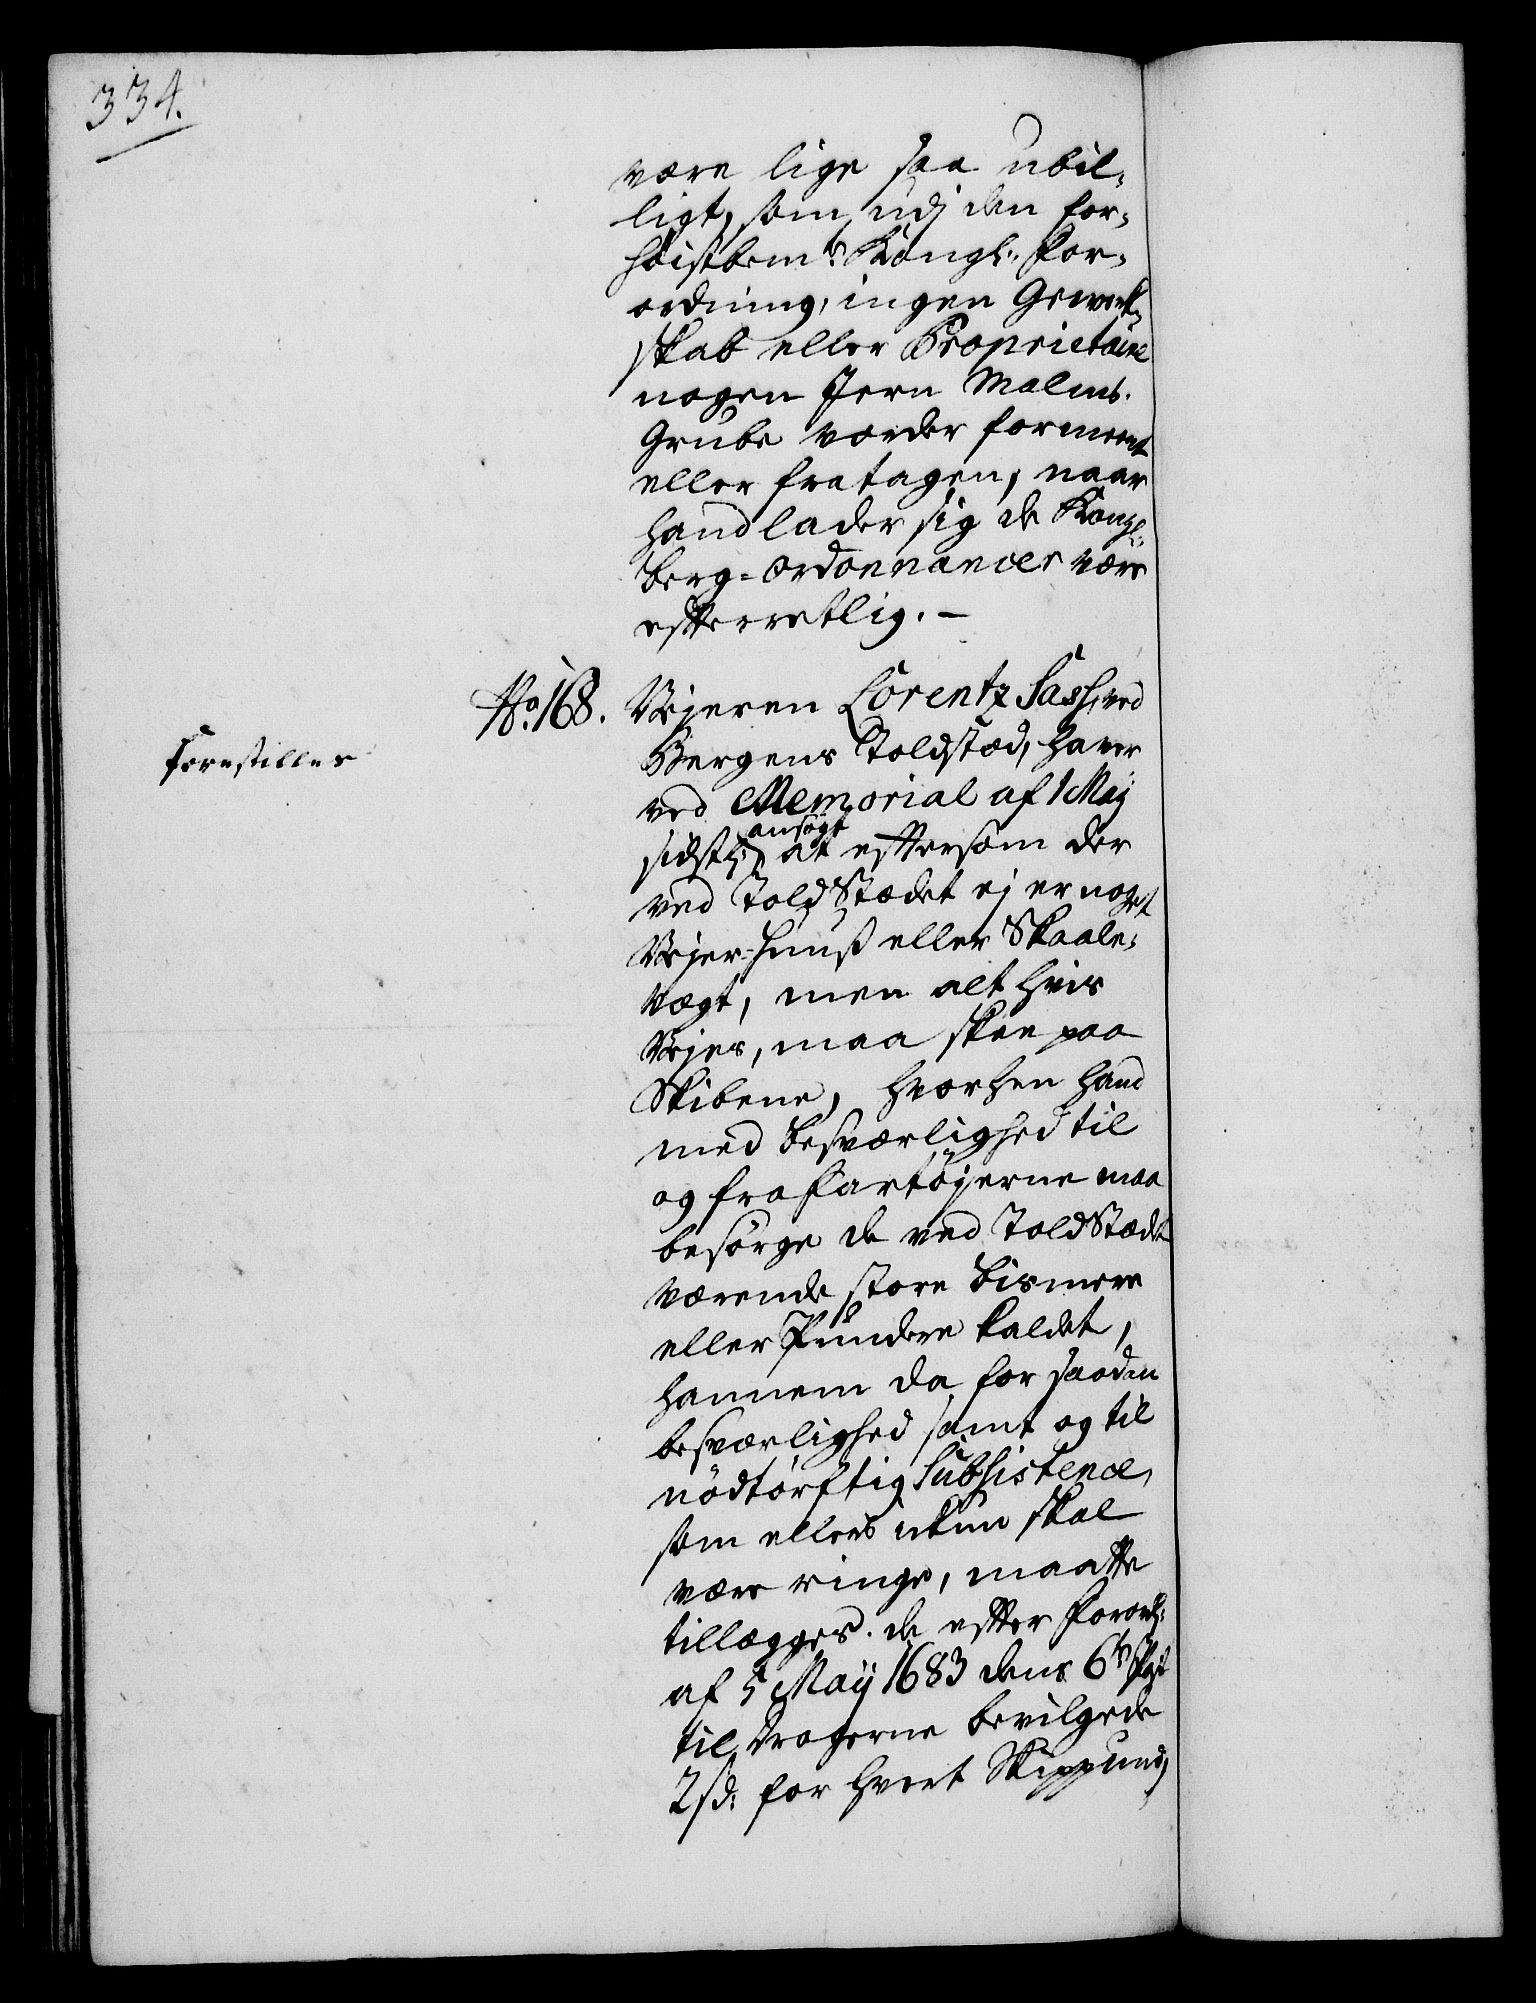 334.
være lige saa ubil-
ligt, som udj den for-
høistbem:te Kongl: For-
ordning, ingen Gewerk-
skab eller Proprietaire
nogen Jern Malms
Grube vorder formeent
eller fratagen, naar
hand lader sig de Kongl:
berg-ordonnancer være
efterretlig. -
No. 168.
Forestilles
Vejeren Lorentz Sass, ved
Bergens Toldstæd, haver
ved Memorial af 1 Maij
sidstl: ansøgt at eftersom der
ved ToldStædet ej er noget
Vejer-Huuß eller Skaale-
vægt, men alt hvis
Vejes, maa skee paa
Skibene, hvorhen hand
med besværlighed til
og fra fartøjerne maa
besørge de ved ToldStædet
værende store bismere
eller Pundere kaldet,
hannem da for saadan
besværlighed samt og til
nødtørftig Subsistence,
som ellers ikun skal
være ringe, maatte
tillægges de efter Forordn:
af 5 Maij 1683 dens 6te Post
til Dragerne bevilgede
2 sd: for hvert Skippund,